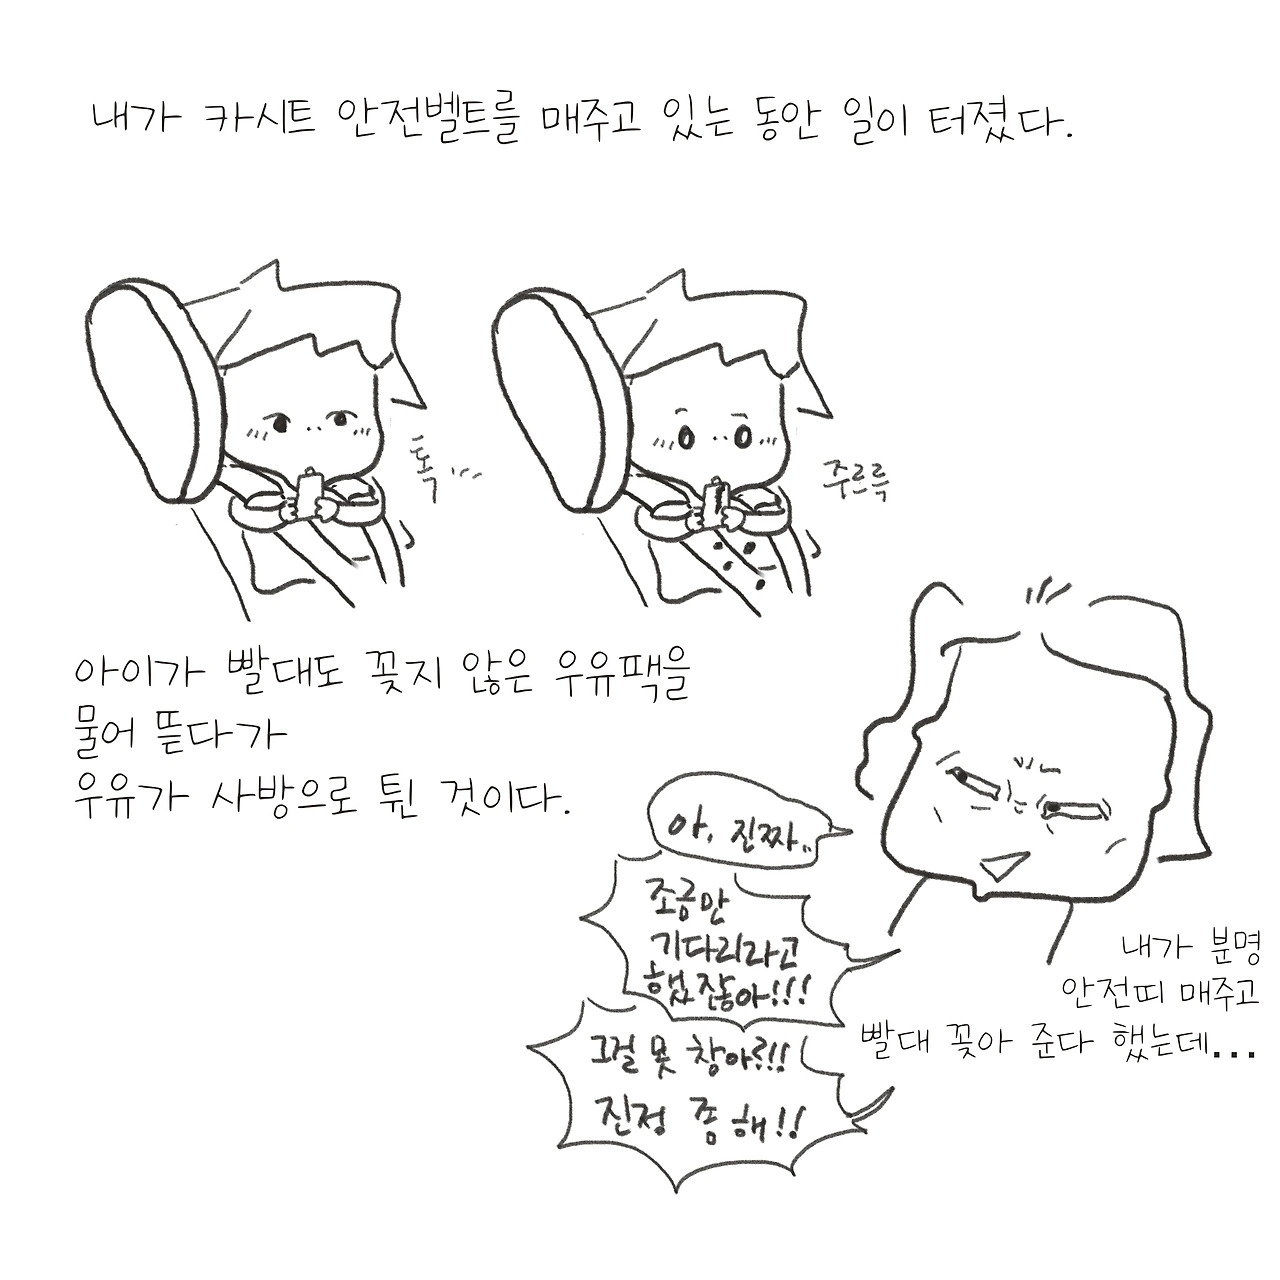 내가 카시트 안전벨트를 매주고 있는 동안 일이 터졌다.
톡
주르륵
아이가 빨대도 꽂지 않은 우유팩을
물어 뜯다가
우유가 사방으로 튄 것이다.
아, 진짜..
조금만
기다리라고
했잖아!!!
내가 분명
안전띠 매주고
빨대 꽂아 준다 했는데...
그걸 못 참아?!!
진정 좀 해!!